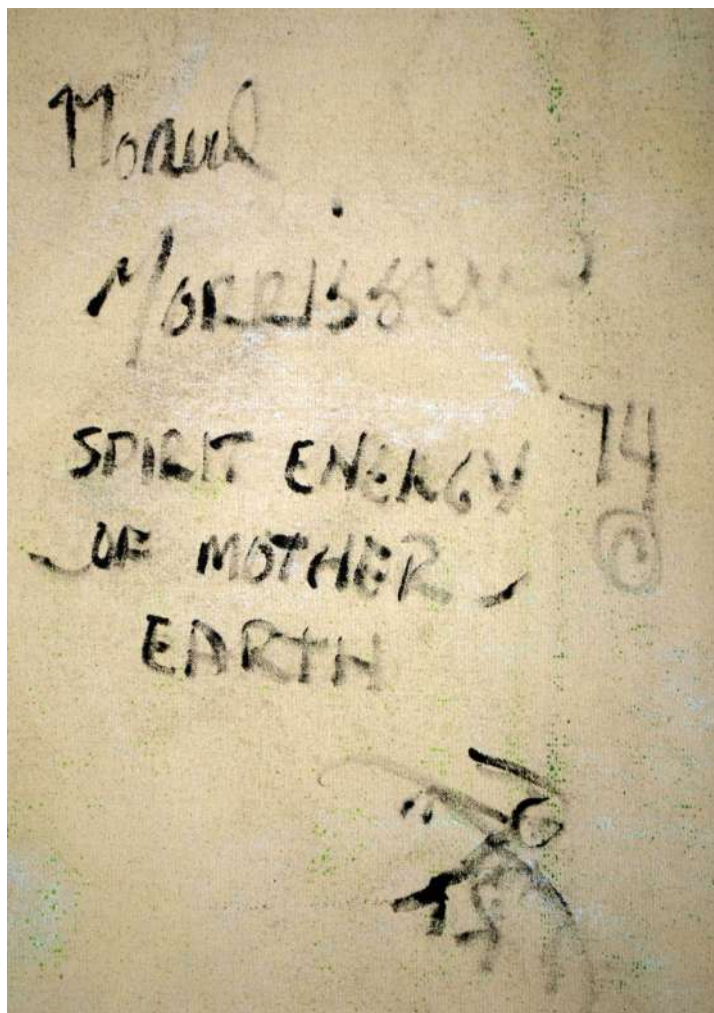 Norval
Morrisseau
'74
SPIRIT ENERGY
OF MOTHER
EARTH
©